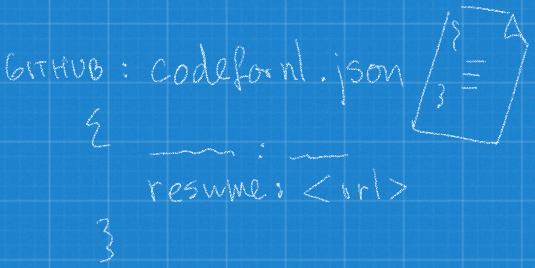 GITHUB : codefornl.json
{
____ : ___
resume: <url>
}
{
}